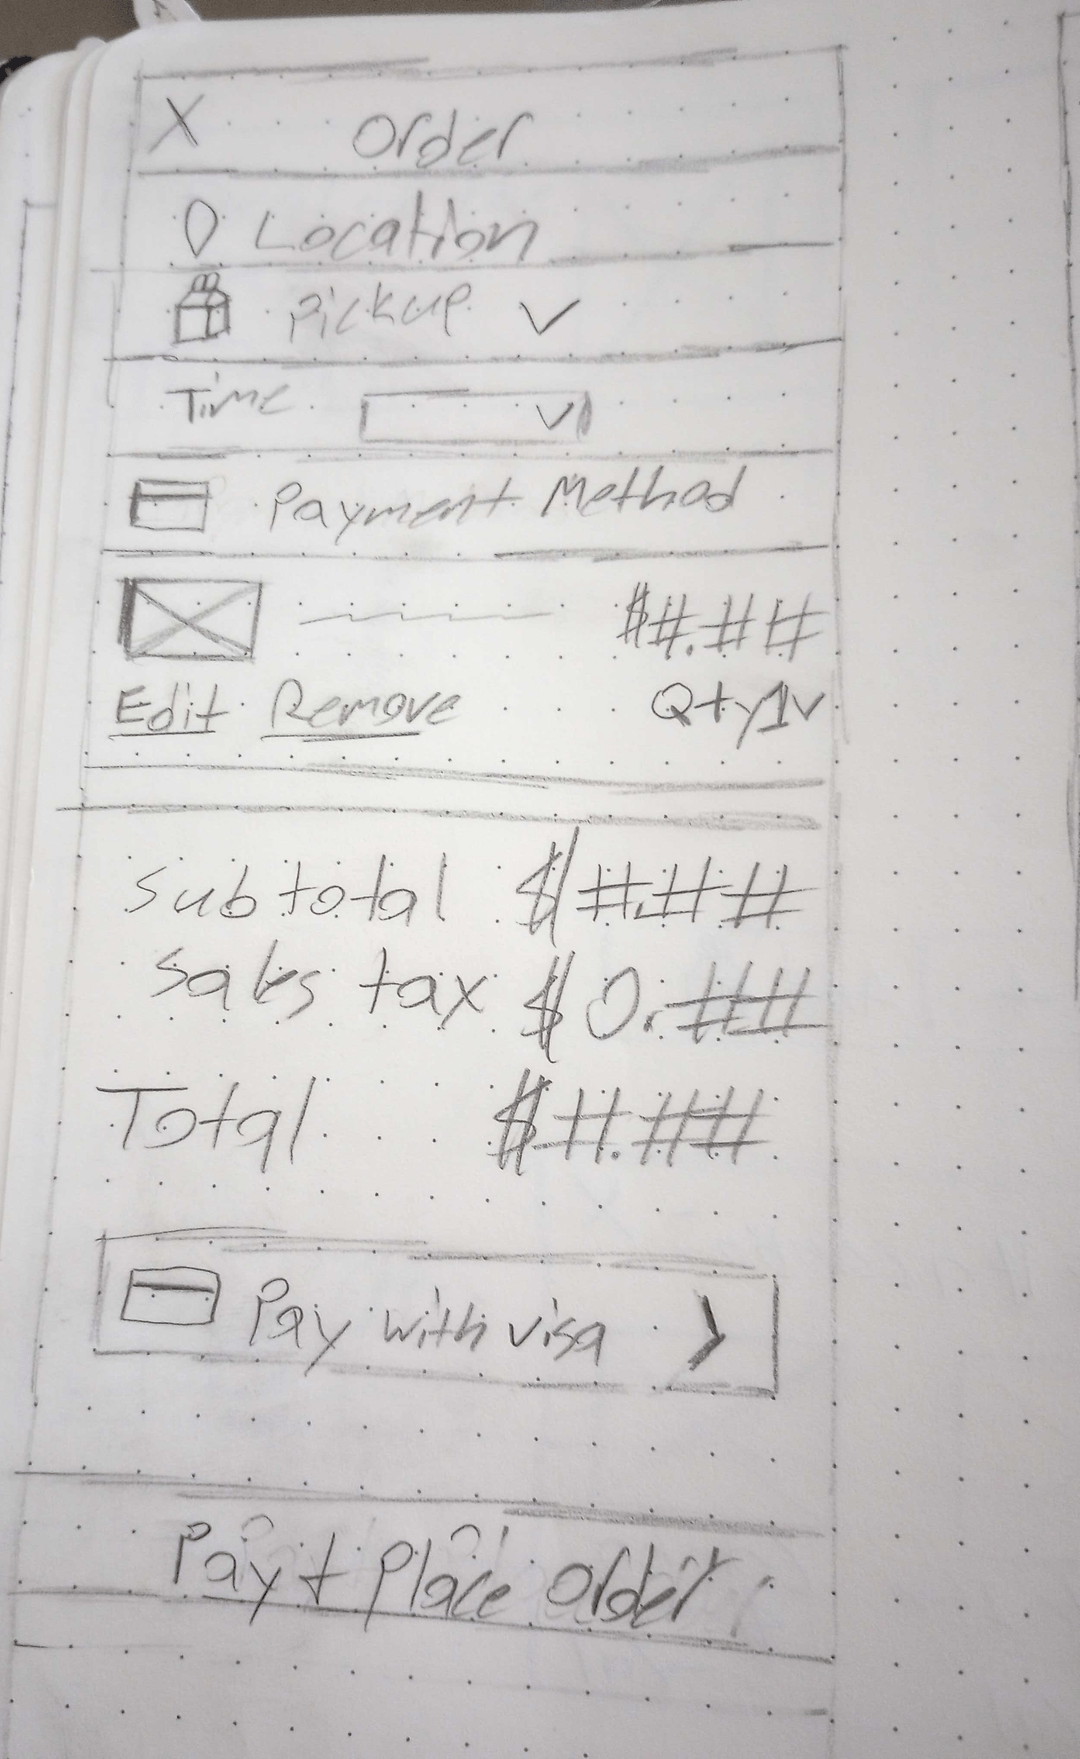 X Order
Location
Pickup
Time
Payment Method
$#.##
Edit Remove Qty 1
Subtotal $#.##
Sales tax $0.##
Total $#.##
Pay with visa >
Pay + Place order